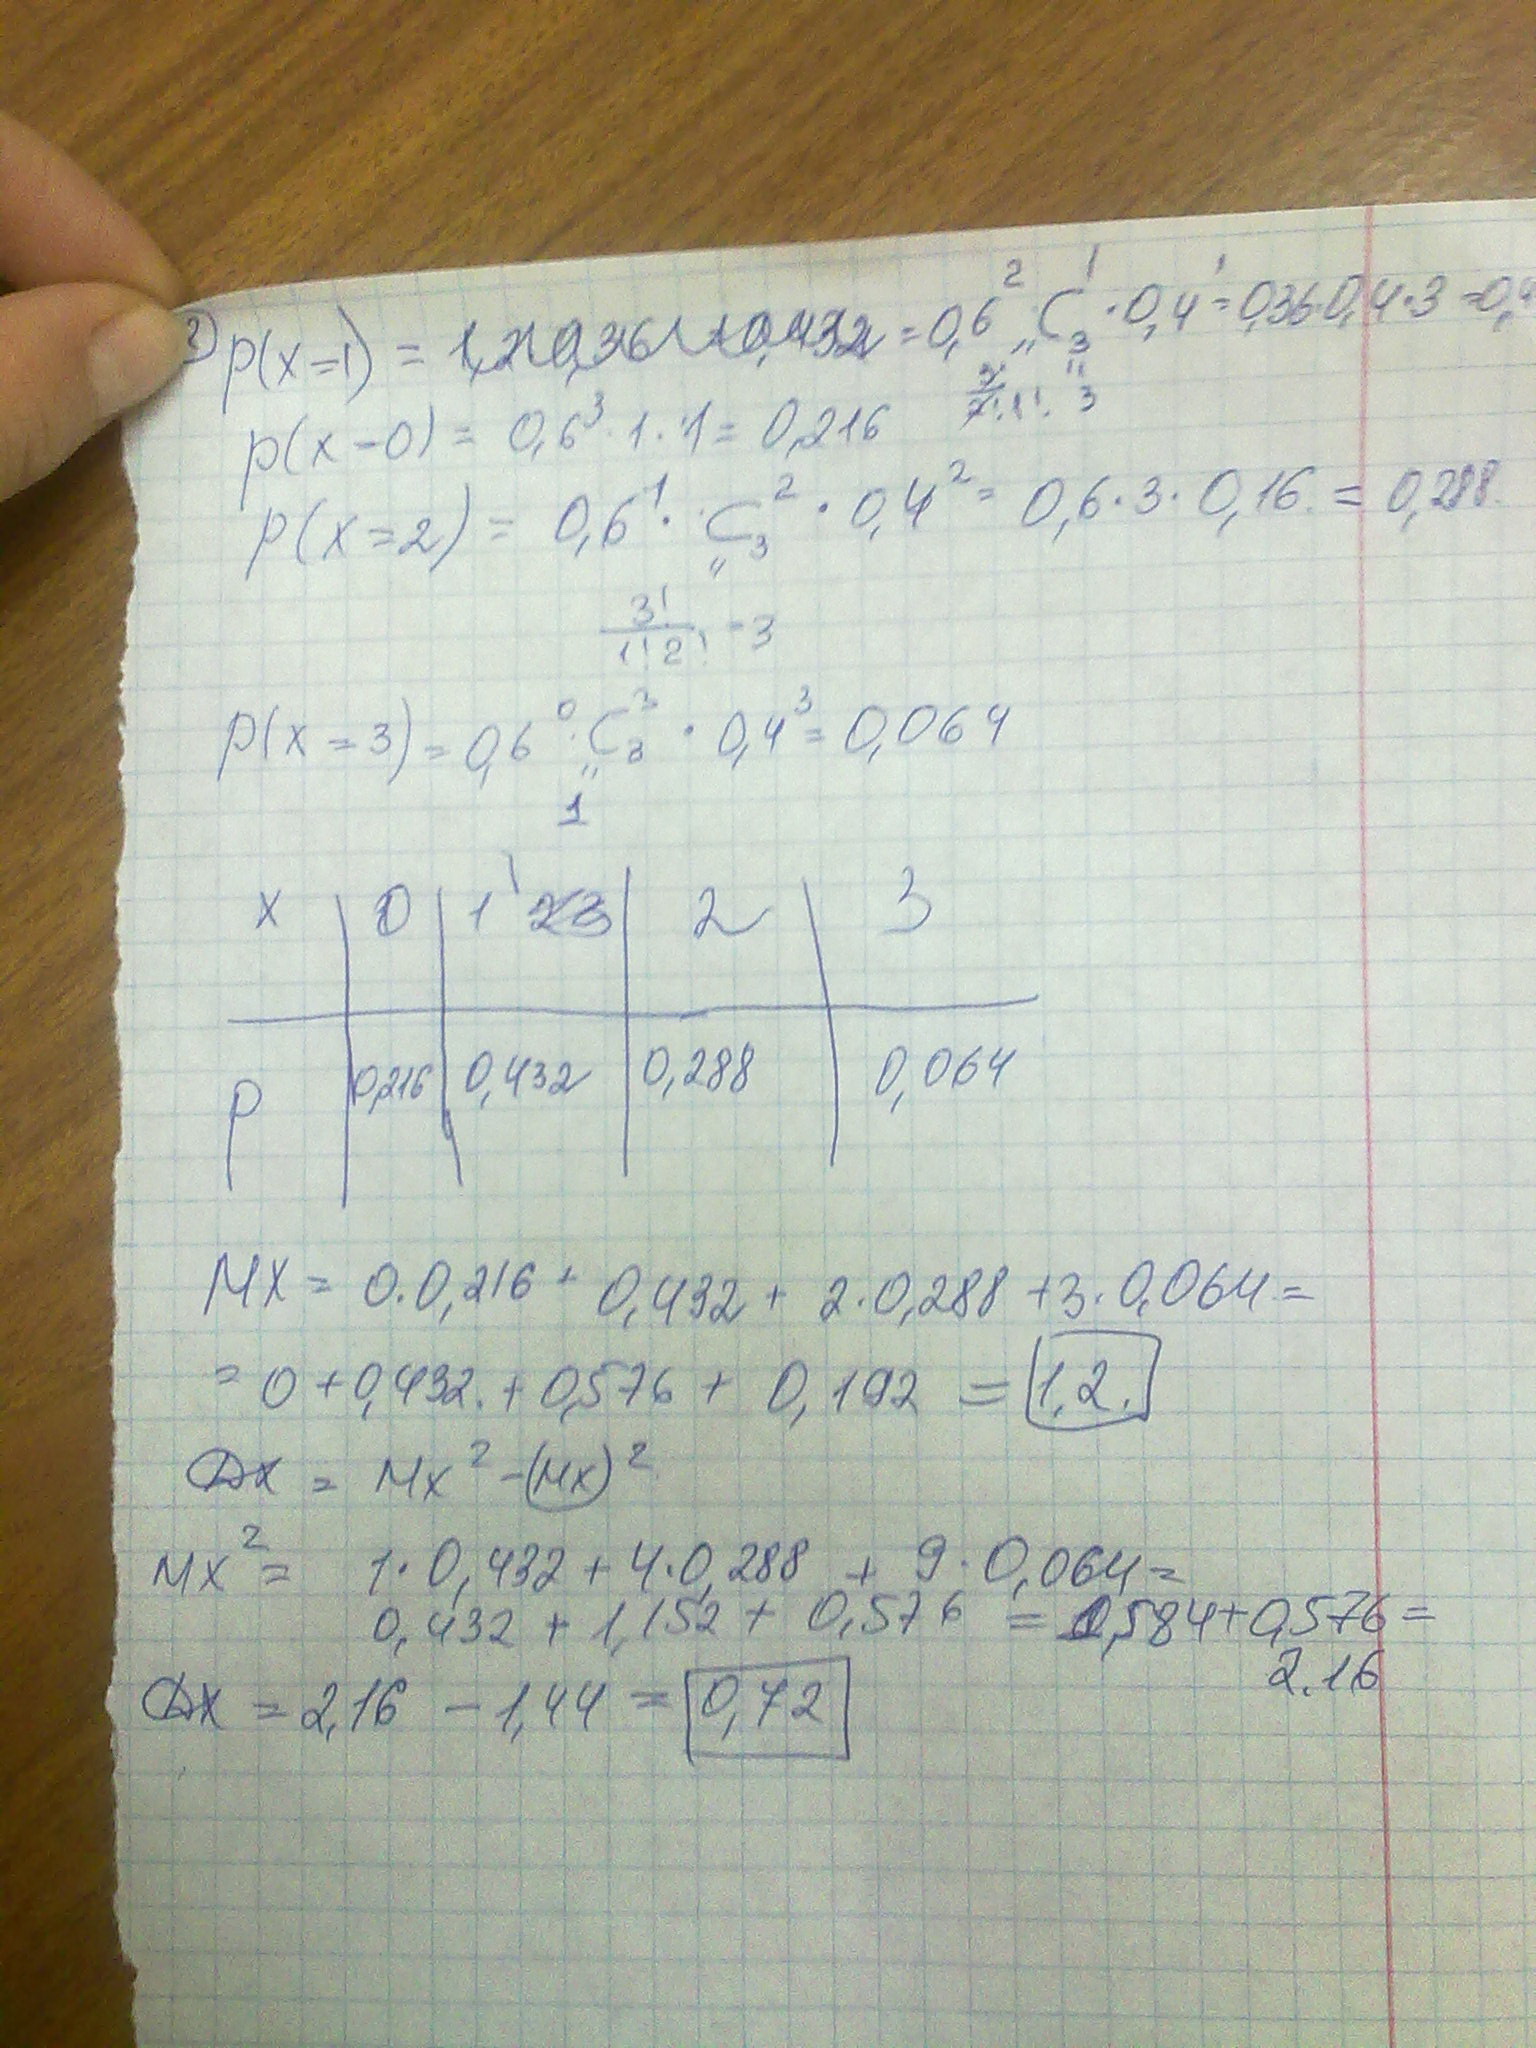 2) p(x=1) = = 0,6² · C₃¹ · 0,4¹ = 0,36 0,4·3 = 0,4
3!/2!·1! 3
p(x-0) = 0,6³·1·1 = 0,216
p(x=2) = 0,6¹· C₃² · 0,4² = 0,6·3·0,16 = 0,288
3!/1!2! = 3
p(x=3) = 0,6⁰·C₃³ · 0,4³ = 0,064
1
x | 0 | 1 | 2 | 3
p | 0,216 | 0,432 | 0,288 | 0,064
Mx = 0·0,216 + 0,432 + 2·0,288 + 3·0,064 =
= 0 + 0,432 + 0,576 + 0,192 = 1,2.
Dx = Mx² - (Mx)²
Mx² = 1·0,432 + 4·0,288 + 9·0,064 =
0,432 + 1,152 + 0,576 = 1,584 + 0,576 =
2.16
Dx = 2,16 - 1,44 = 0,72